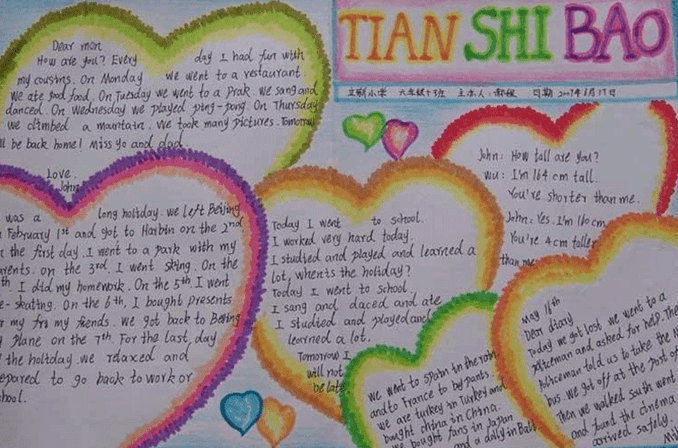 TIAN SHI BAO
Dear mom
How are you? Every day I had fun with
my cousins. On Monday we went to a restaurant.
We ate good food. On Tuesday we went to a prak. We sang and
danced. On Wednesday we played ping-pong. On Thursday
we climbed a mountain. We took many pictures. Tomorrow
ll be back home! Miss yo and dad.
Love.
John
was a long holiday. we left Beijing
February 1st and got to Harbin on the 2nd
the first day. I went to a park with my
arents. on the 3rd I went sking. On the
th I did my homework. On the 5th I went
e-skating. On the 6th, I bought presents
r my fri my friends. we got back to Beijing
plane on the 7th. For the last day
the holtday we rdaxed and
epared to go back to work or
chool.
Today I went to school.
I worked very hard today.
I studied and played and learned a
lot, when's the holiday?
Today I went to school
I sang and daced and ate
I studied and played and
learned a lot.
Tomorrow I
will not
be late
John: How tall are you?
Wu: I'm 164 cm tall.
You're shorter than me.
John: Yes. I'm 160 cm
You're 4 cm taller
than me
we went to Spain in the
and to France to by pants
we are turkey in Turkey and
bught china in China.
we bought fans in Japan
and a dolly in Bali
May 16th
Dear diary
Today we got lost. we went to a
policeman and asked for help. The
policeman told us to take the
bus. we got off at the post of
Then we walked south went
and fund the cinema
arrived safely.